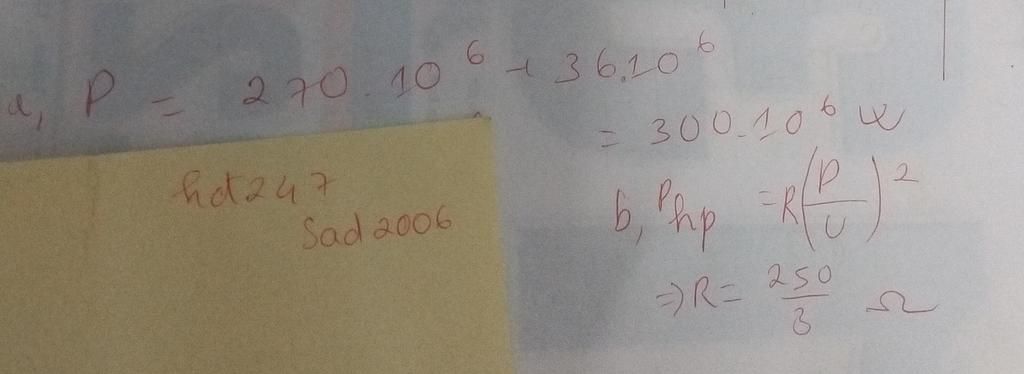 a, P = 270.10^6 + 36.10^6
= 300.10^6 W
hdt247
Sad2006
b, P_hp = R(P/U)^2
=> R = 250/3 Ω